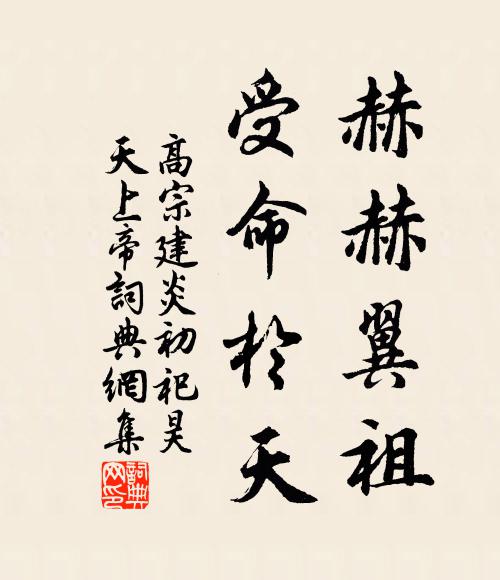 赫赫翼祖
受命於天
高宗建炎初祀昊
天上帝詞典網集
詞典
网印